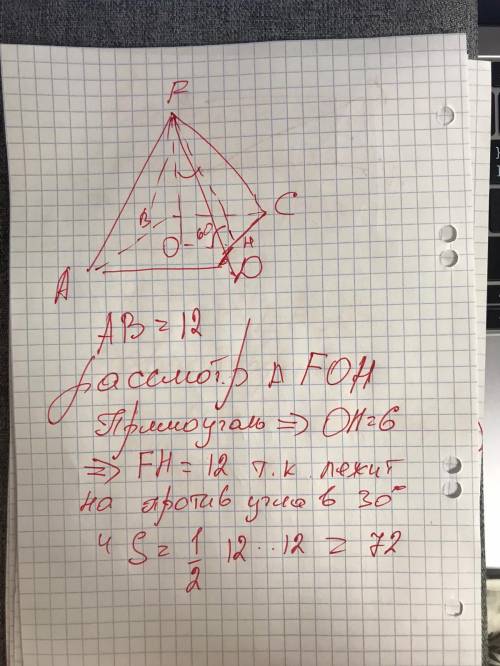 F
B
C
O
60
H
A
D
AB = 12
рассмотр Δ FOH
Прямоуголь => OH=6
=> FH = 12 т.к. лежит
на против угла в 30°
ч S = 1/2 12 · · 12 = 72